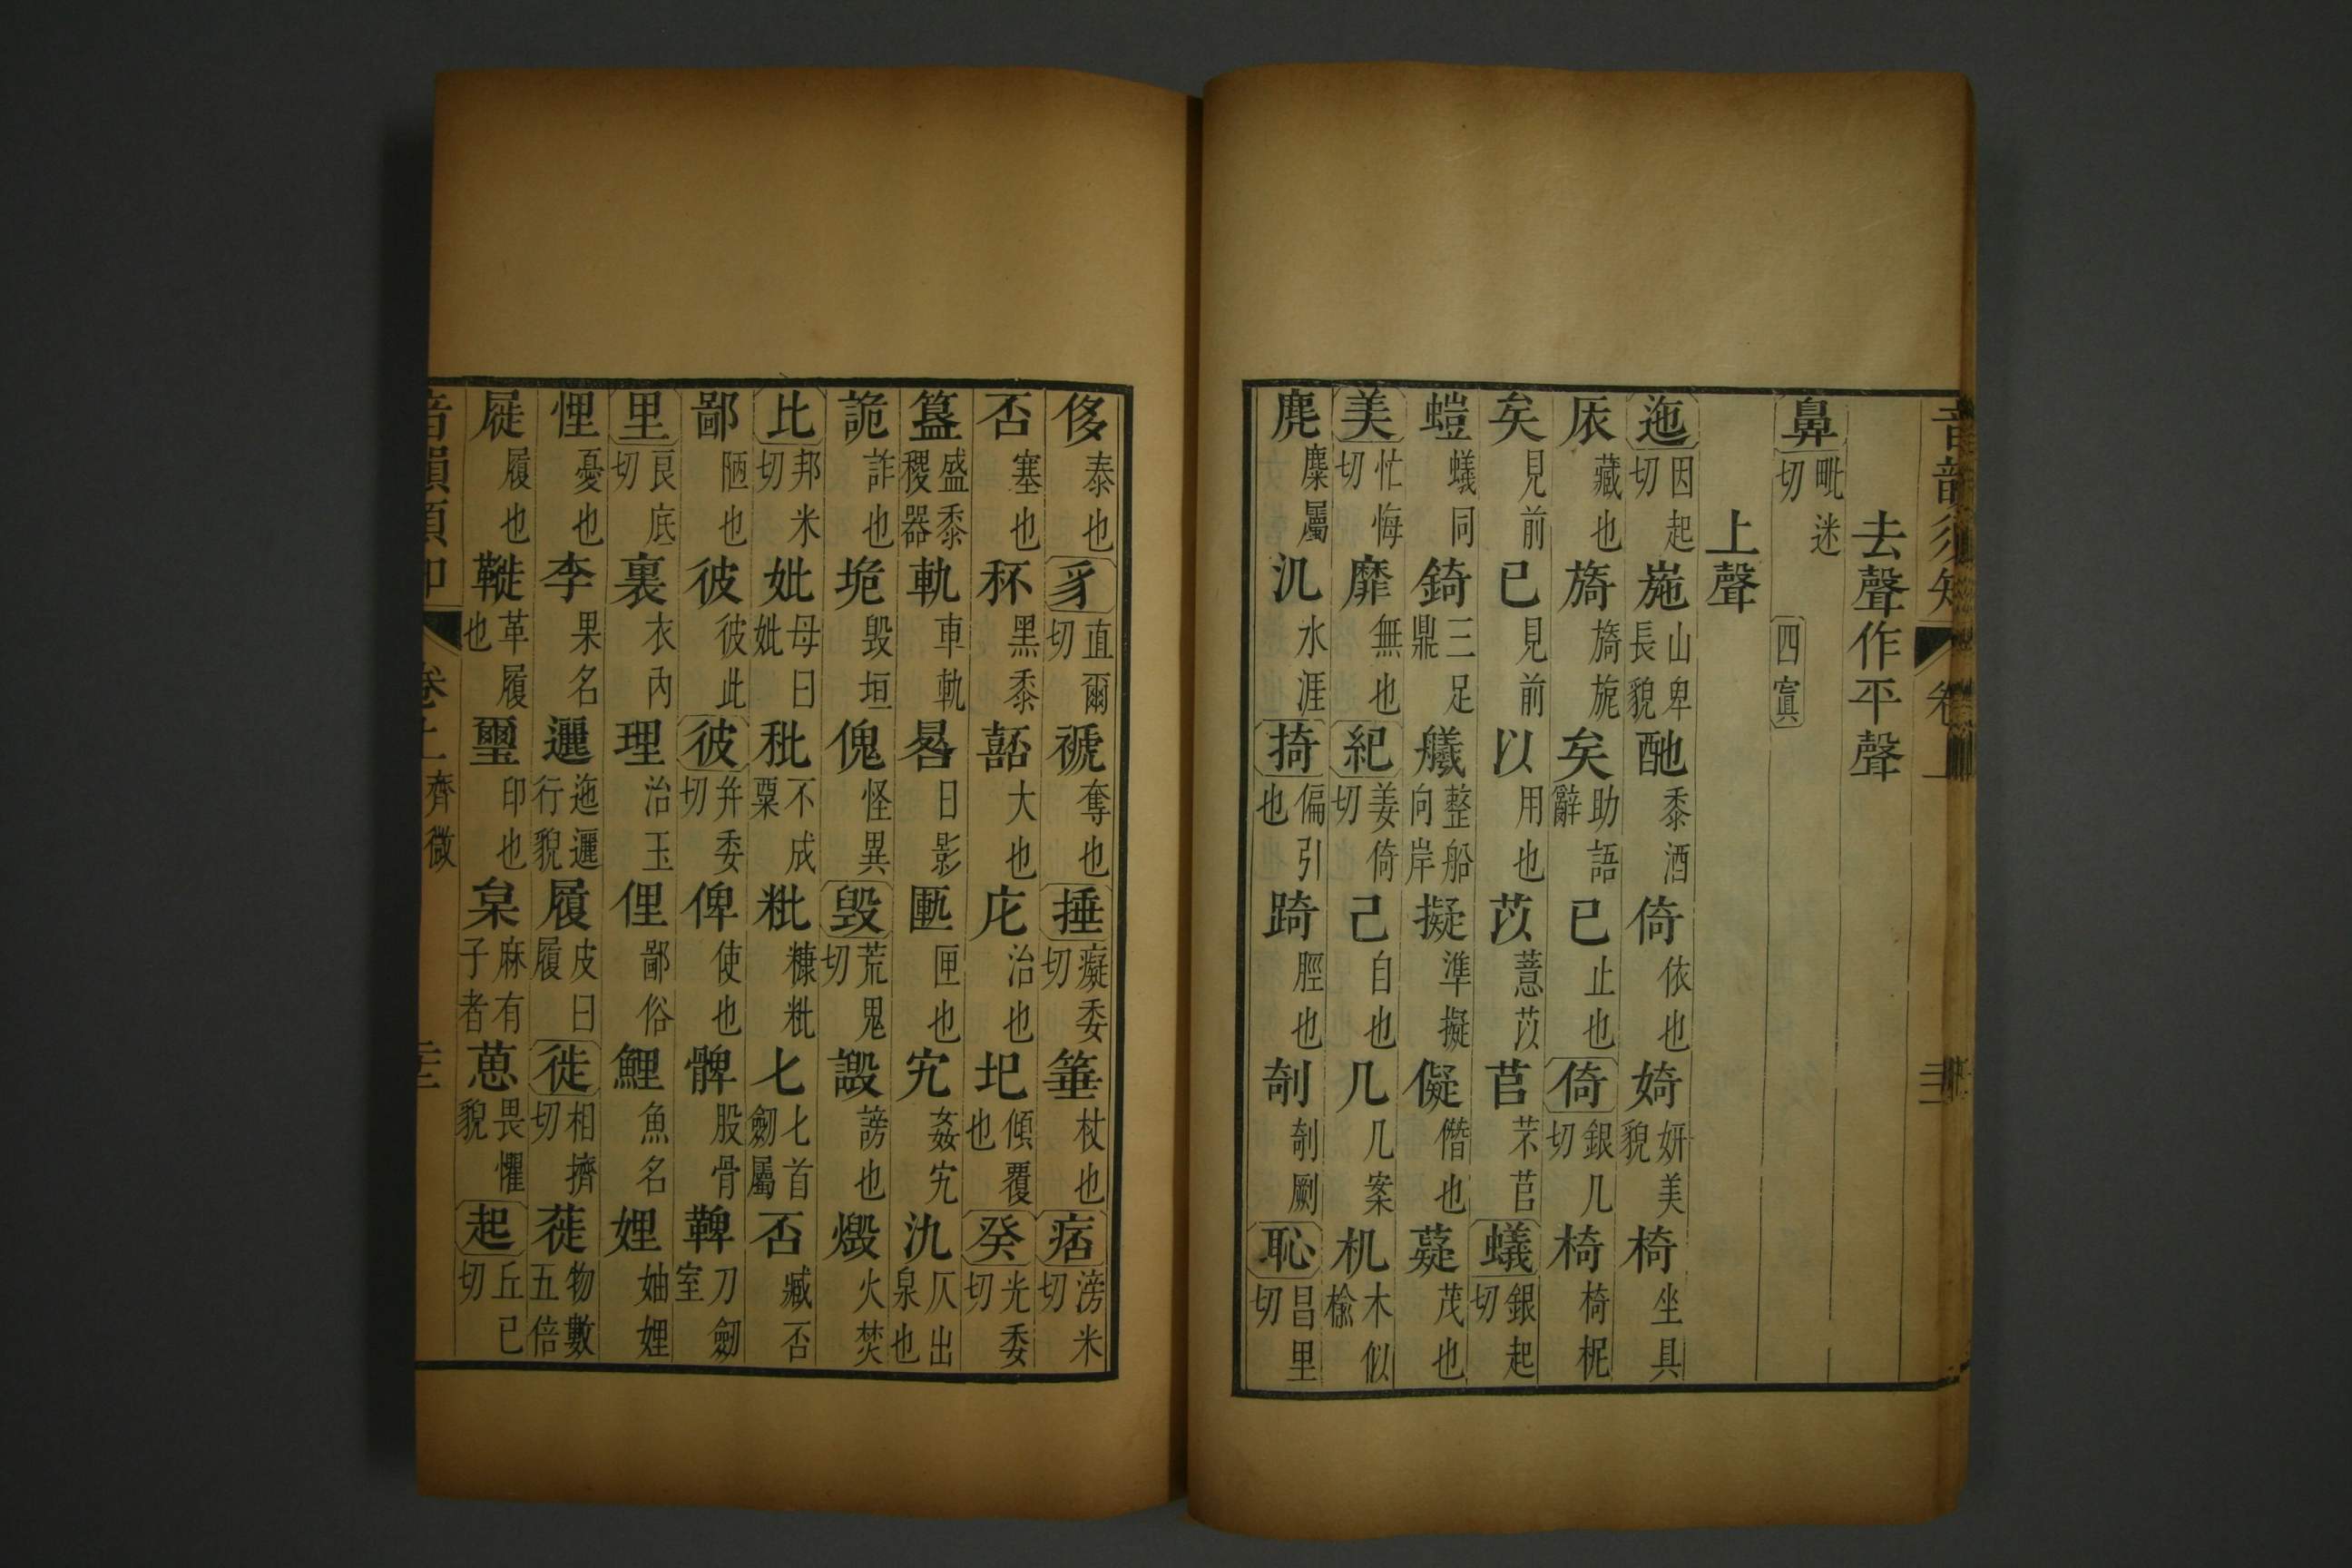 音韻須知 卷上
去聲作平聲
鼻毗迷切 四寘
上聲
迤因起切 崺山卑長貌 酏黍酒 倚依也 婍妍美貌 椅坐具
扆藏也 旖旖旎 矣助語辭 已止也 倚銀几切 椅椅柅
矣見前 已見前 以用也 苡薏苡 苢芣苢 蟻銀起切
螘蟻同 錡三足鼎 艤整船向岸 擬準擬 儗僭也 薿茂也
美忙悔切 靡無也 紀姜倚切 己自也 几几案 机木似榆
麂麋屬 氿水涯 掎偏引也 踦脛也 剞剞劂 恥昌里切
侈泰也 豸直爾切 褫奪也 捶癡委切 箠杖也 痞滂米切
否塞也 秠黑黍 嚭大也 庀治也 圮傾覆也 癸光委切
簋盛黍稷器 軌車軌 晷日影 匭匣也 宄姦宄 氿仄出泉也
詭詐也 垝毀垣 傀怪異 毀荒鬼切 譭謗也 燬火焚
比邦米切 妣母曰妣 秕不成粟 粃糠粃 匕匕首劒屬 否臧否
鄙陋也 彼彼此 彼幷委切 俾使也 髀股骨 鞞刀劒室
里良底切 裏衣內 理治玉 俚鄙俗 鯉魚名 娌妯娌
悝憂也 李果名 邐迤邐行貌 履皮曰履 徙相擠切 蓰物數五倍
屣履也 鞾革履也 璽印也 枲麻有子者 葸畏懼貌 起丘已切
音韻須知 卷上 齊微